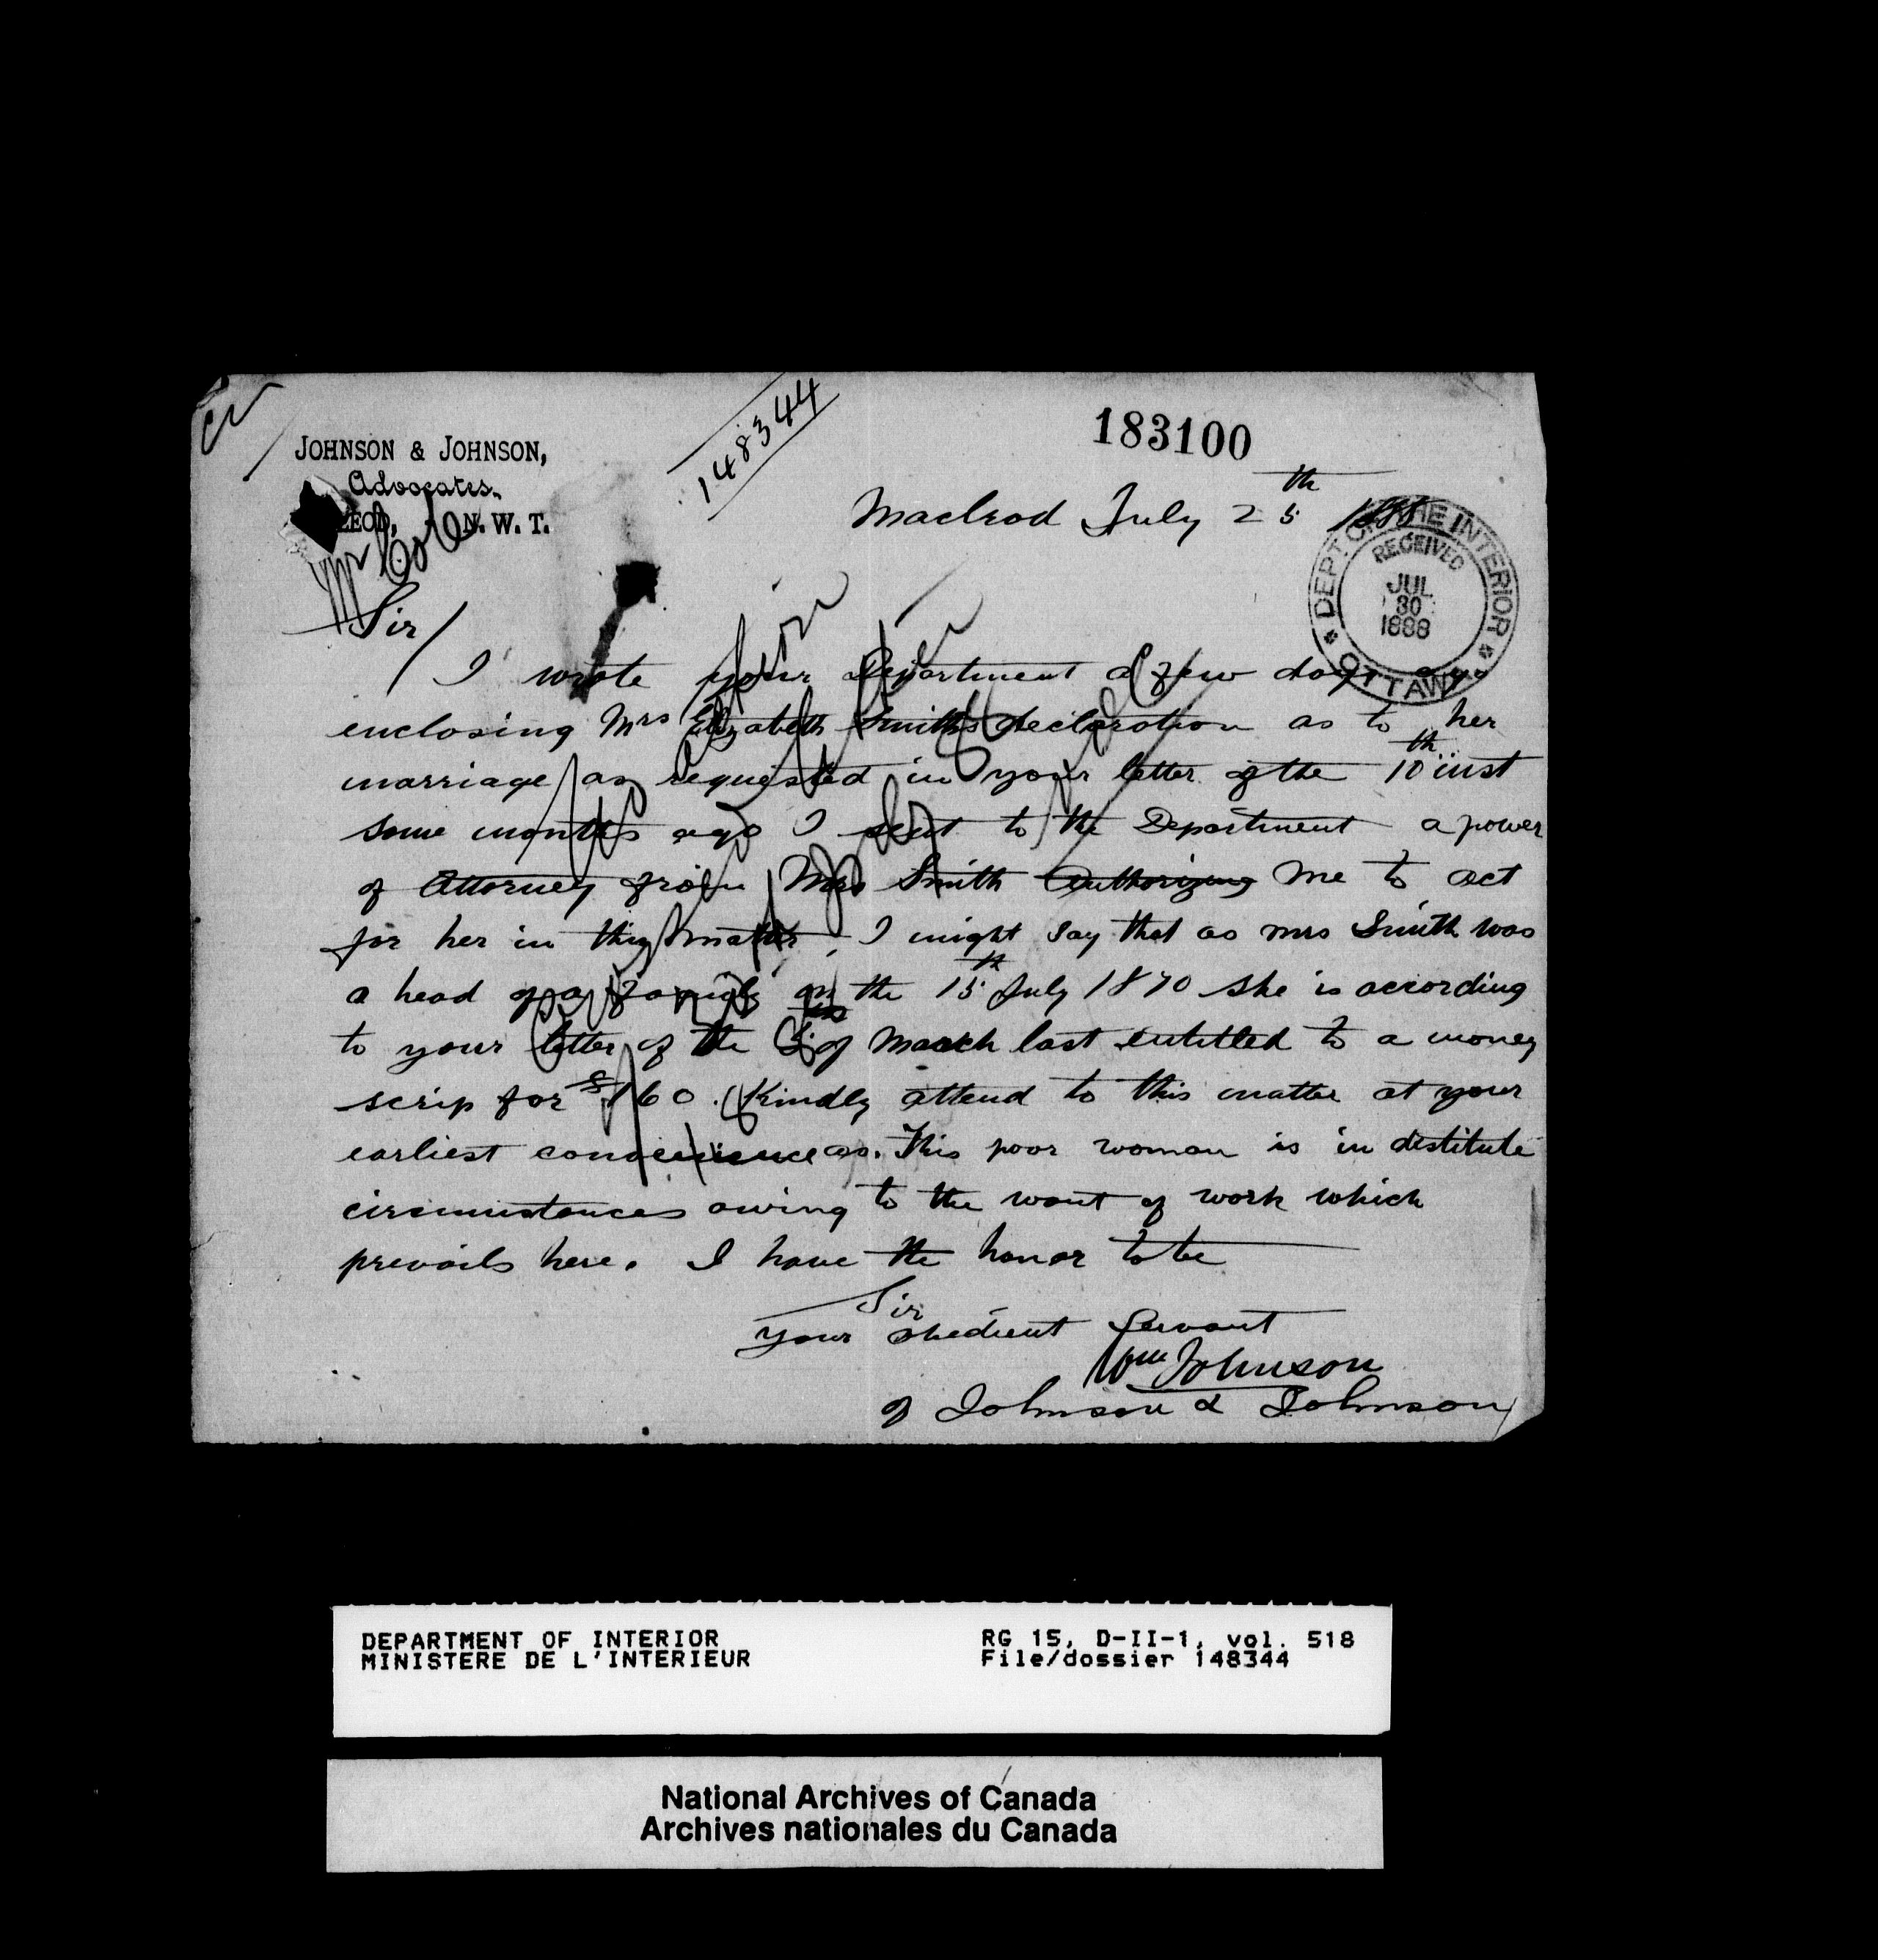 148344
183100
JOHNSON & JOHNSON,
Advocates.
LEOD, N. W. T.
Mr Cole
Macleod July 25th 1888
DEPT. OF THE INTERIOR
RECEIVED
JUL
30
1888
OTTAWA
Sir
I wrote your Department a few days ago
enclosing Mrs Elizabeth Smith's declaration as to her
marriage as requested in your letter of the 10th inst
some months ago I sent to the Department a power
of Attorney from Mrs Smith Authorizing me to act
for her in this matter, I might say that as Mrs Smith was
a head of a family on the 15th July 1870 she is according
to your letter of the of March last entitled to a money
scrip for $160. Kindly attend to this matter at your
earliest convenience as. This poor woman is in destitute
circumstances owing to the want of work which
prevails here. I have the honor to be
Sir
your obedient Servant
Wm Johnson
of Johnson & Johnson
DEPARTMENT OF INTERIOR
MINISTERE DE L'INTERIEUR
RG 15, D-II-1, vol. 518
File/dossier 148344
National Archives of Canada
Archives nationales du Canada